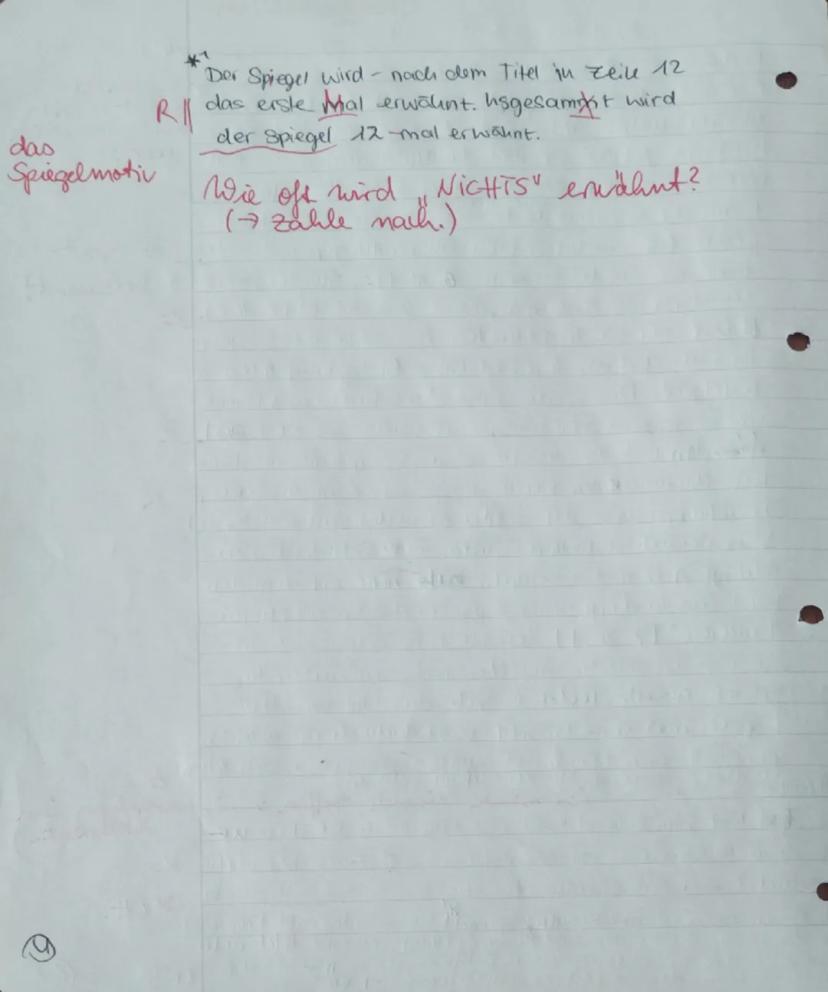 *1
Der Spiegel wird - nach dem Titel in Zeile 12
R|| das erste Mal erwähnt. Insgesammt wird
der Spiegel 12-mal erwähnt.
das
Spiegelmotiv
Wie oft wird „NICHTS" erwähnt?
(→ zähle nach.)
4